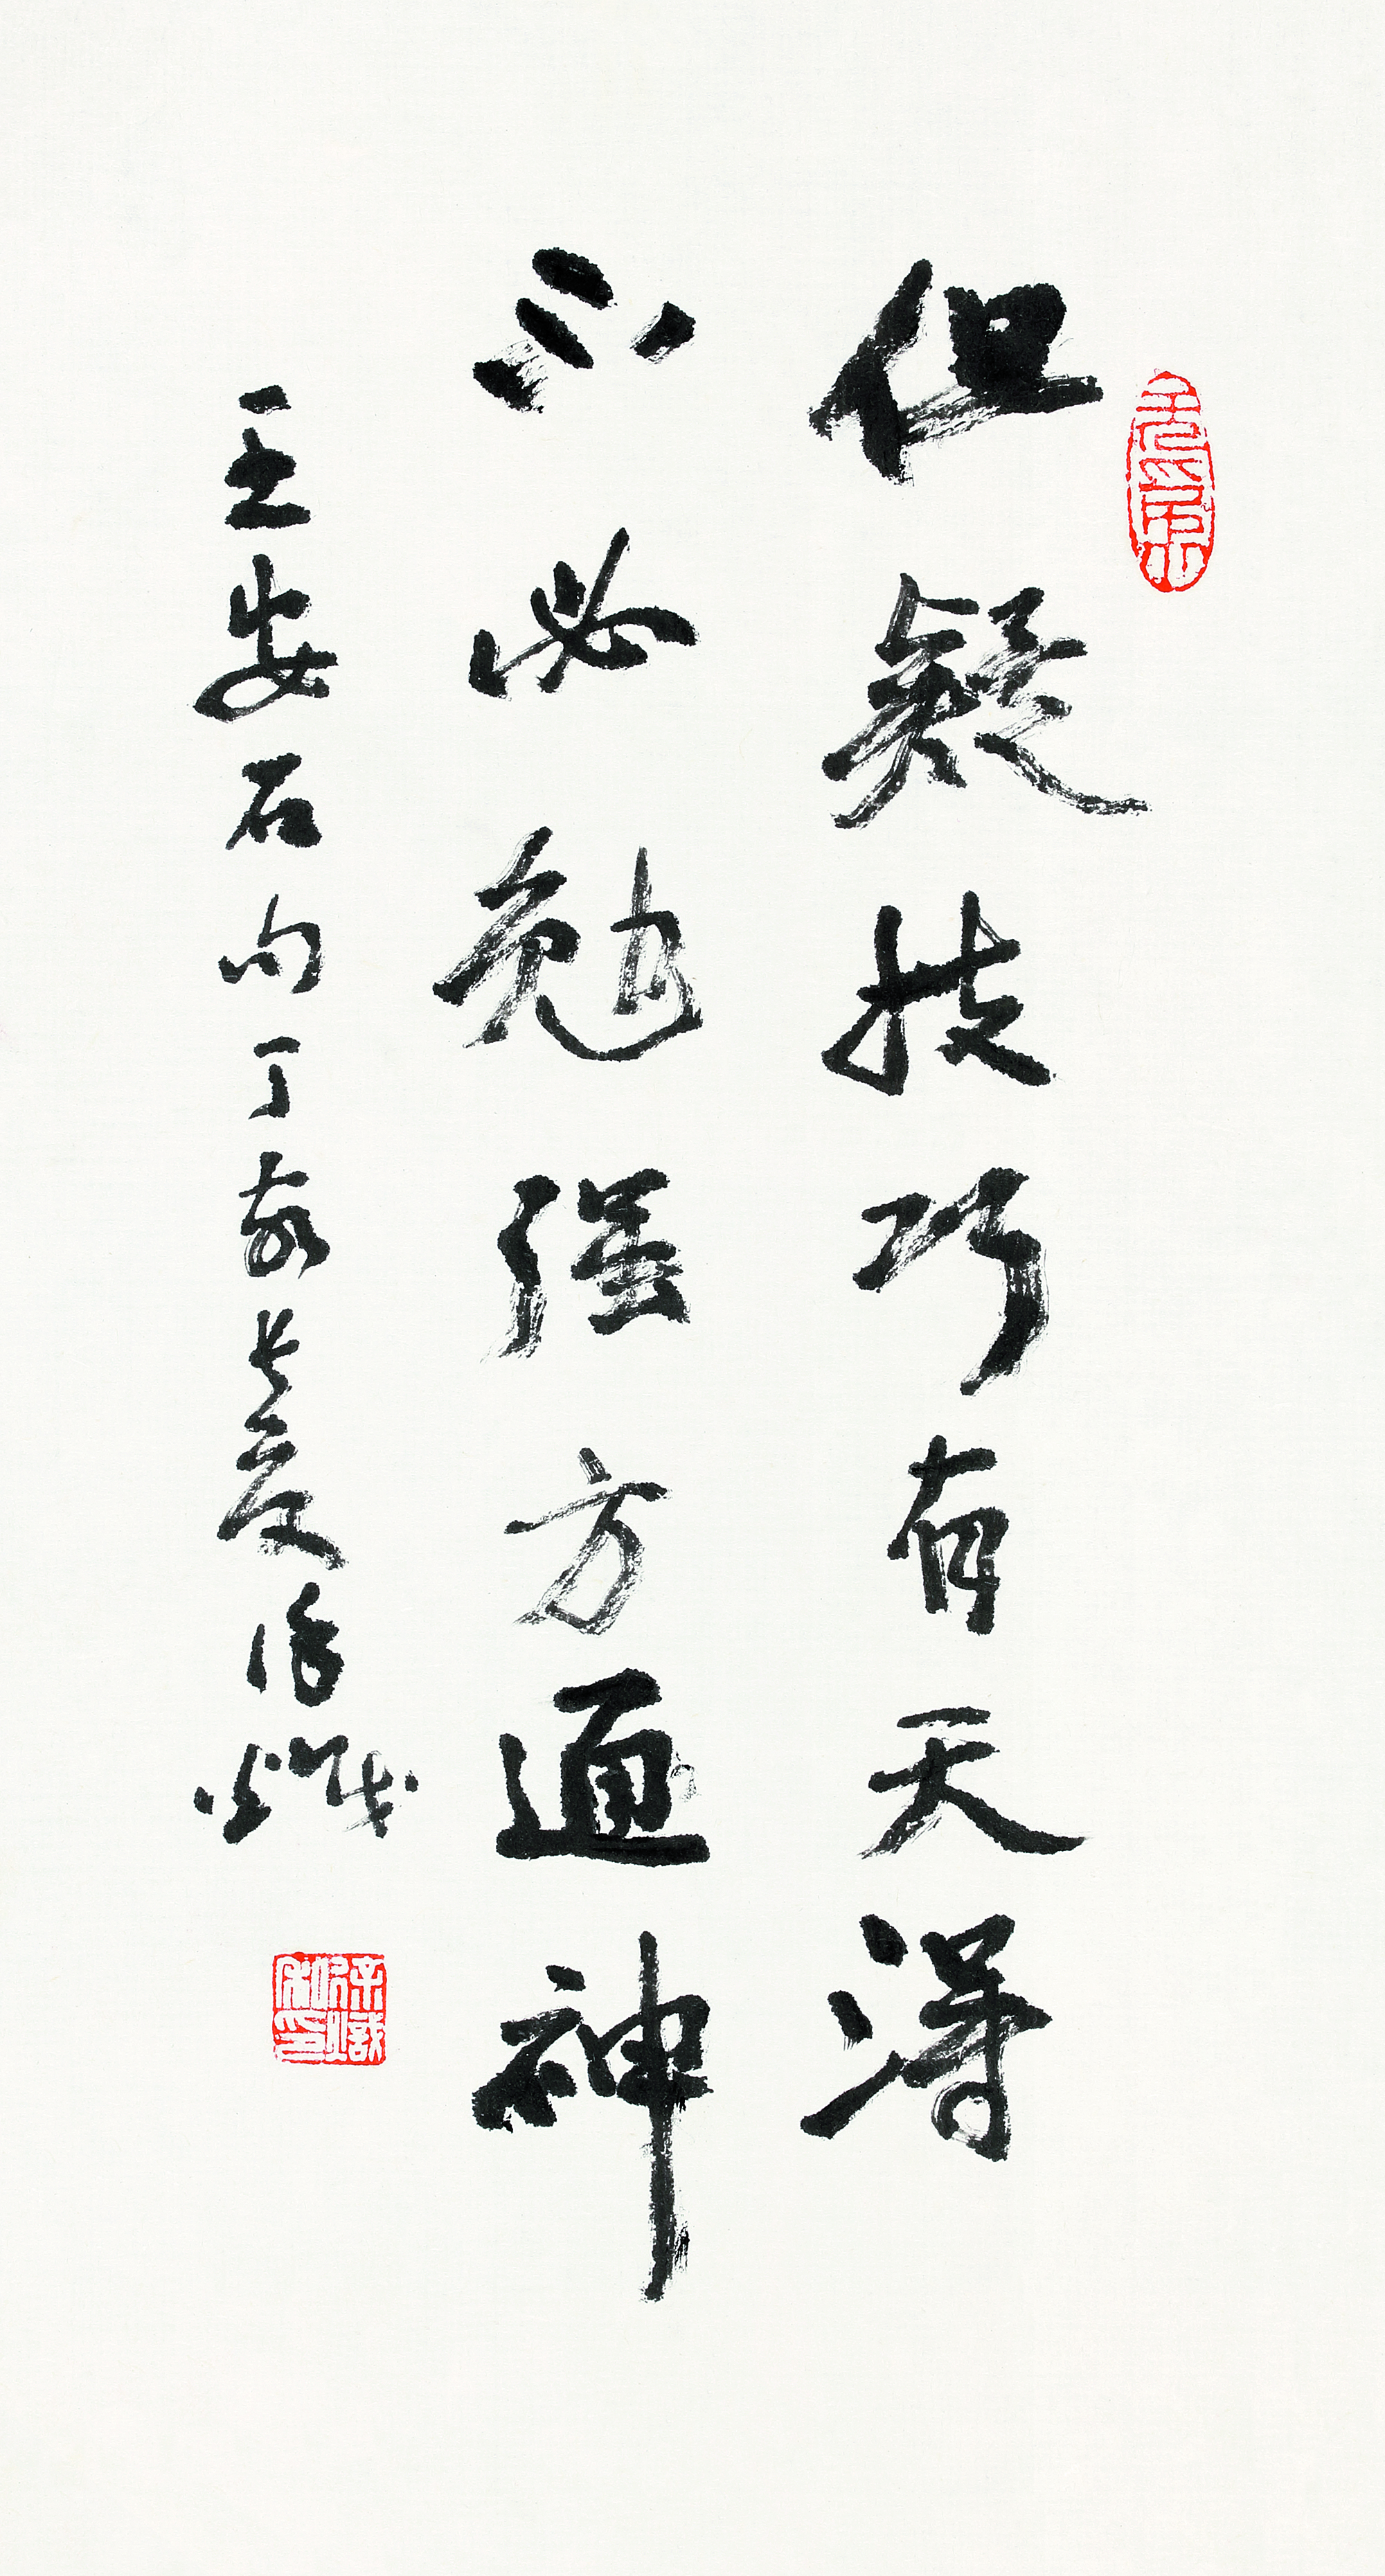 但疑技巧有天得
不必勉强方通神
王安石句丁亥长夏徐炽